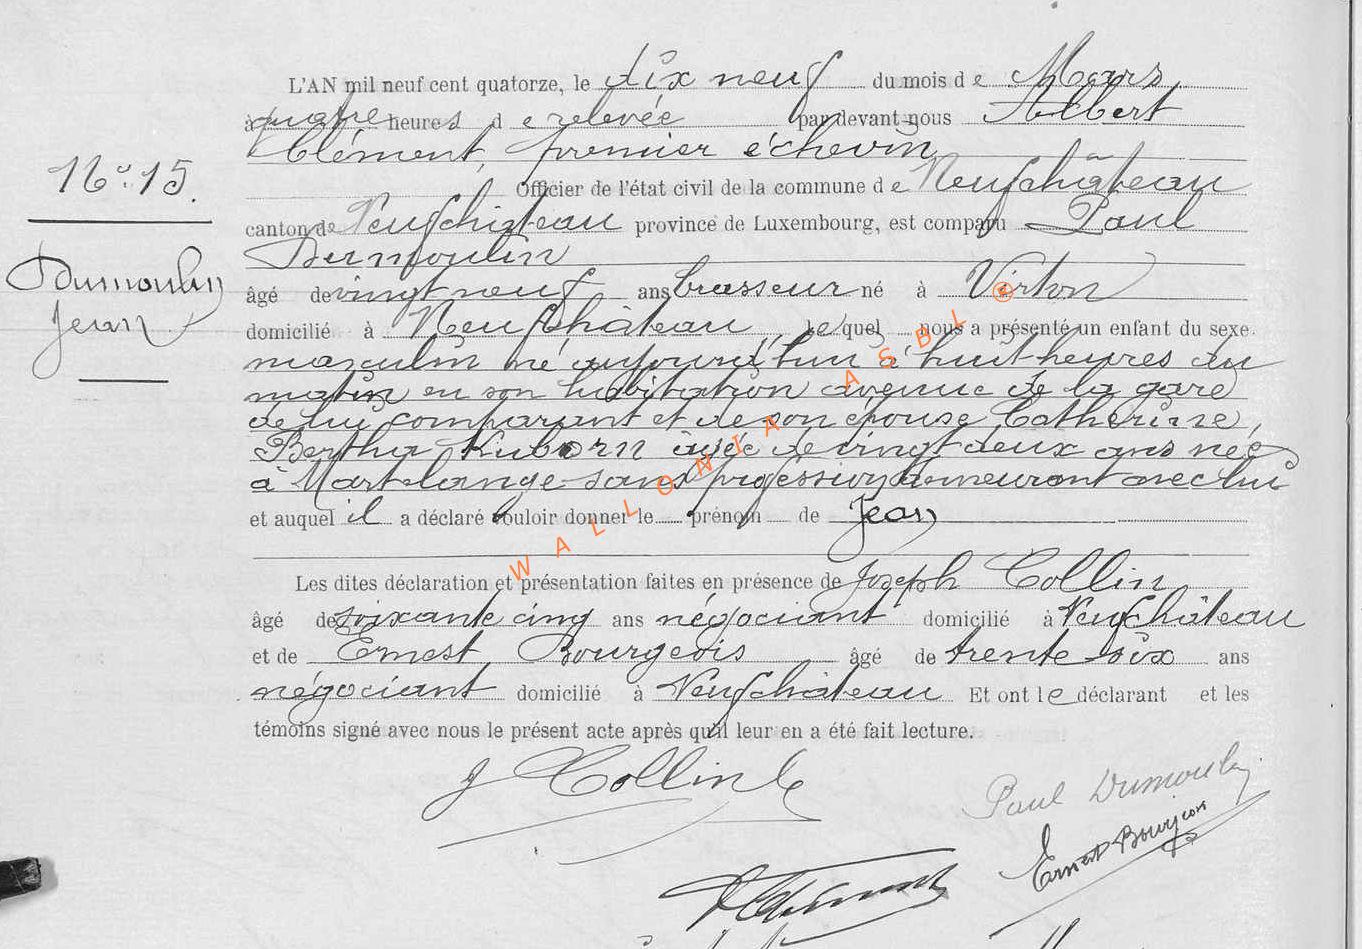 L'AN mil neuf cent quatorze, le dix neuf du mois de Mars
à quatre heures de relevée par devant nous Albert
Clément, premier échevin
N° 15.
Officier de l'état civil de la commune de Neufchâteau
canton de Neufchâteau province de Luxembourg, est comparu Paul
Dumoulin
Dumoulin
Jean
âgé de vingt neuf ans brasseur né à Virton
domicilié à Neufchâteau, lequel nous a présenté un enfant du sexe
masculin né aujourd'hui à huit heures du
matin en son habitation avenue de la gare
de lui comparant et de son épouse Catherine,
Bertha Kuborn âgée de vingt deux ans née
à Martelange sans profession demeurant avec lui
et auquel il a déclaré vouloir donner le prénom de Jean
Les dites déclaration et présentation faites en présence de Joseph Collin
âgé de soixante cinq ans négociant domicilié à Neufchâteau
et de Ernest Bourgeois âgé de trente-six ans
négociant domicilié à Neufchâteau Et ont le déclarant et les
témoins signé avec nous le présent acte après qu'il leur en a été fait lecture.
J Collin
Paul Dumoulin
Ernest Bourgeois
WALLONIA ASBL ®